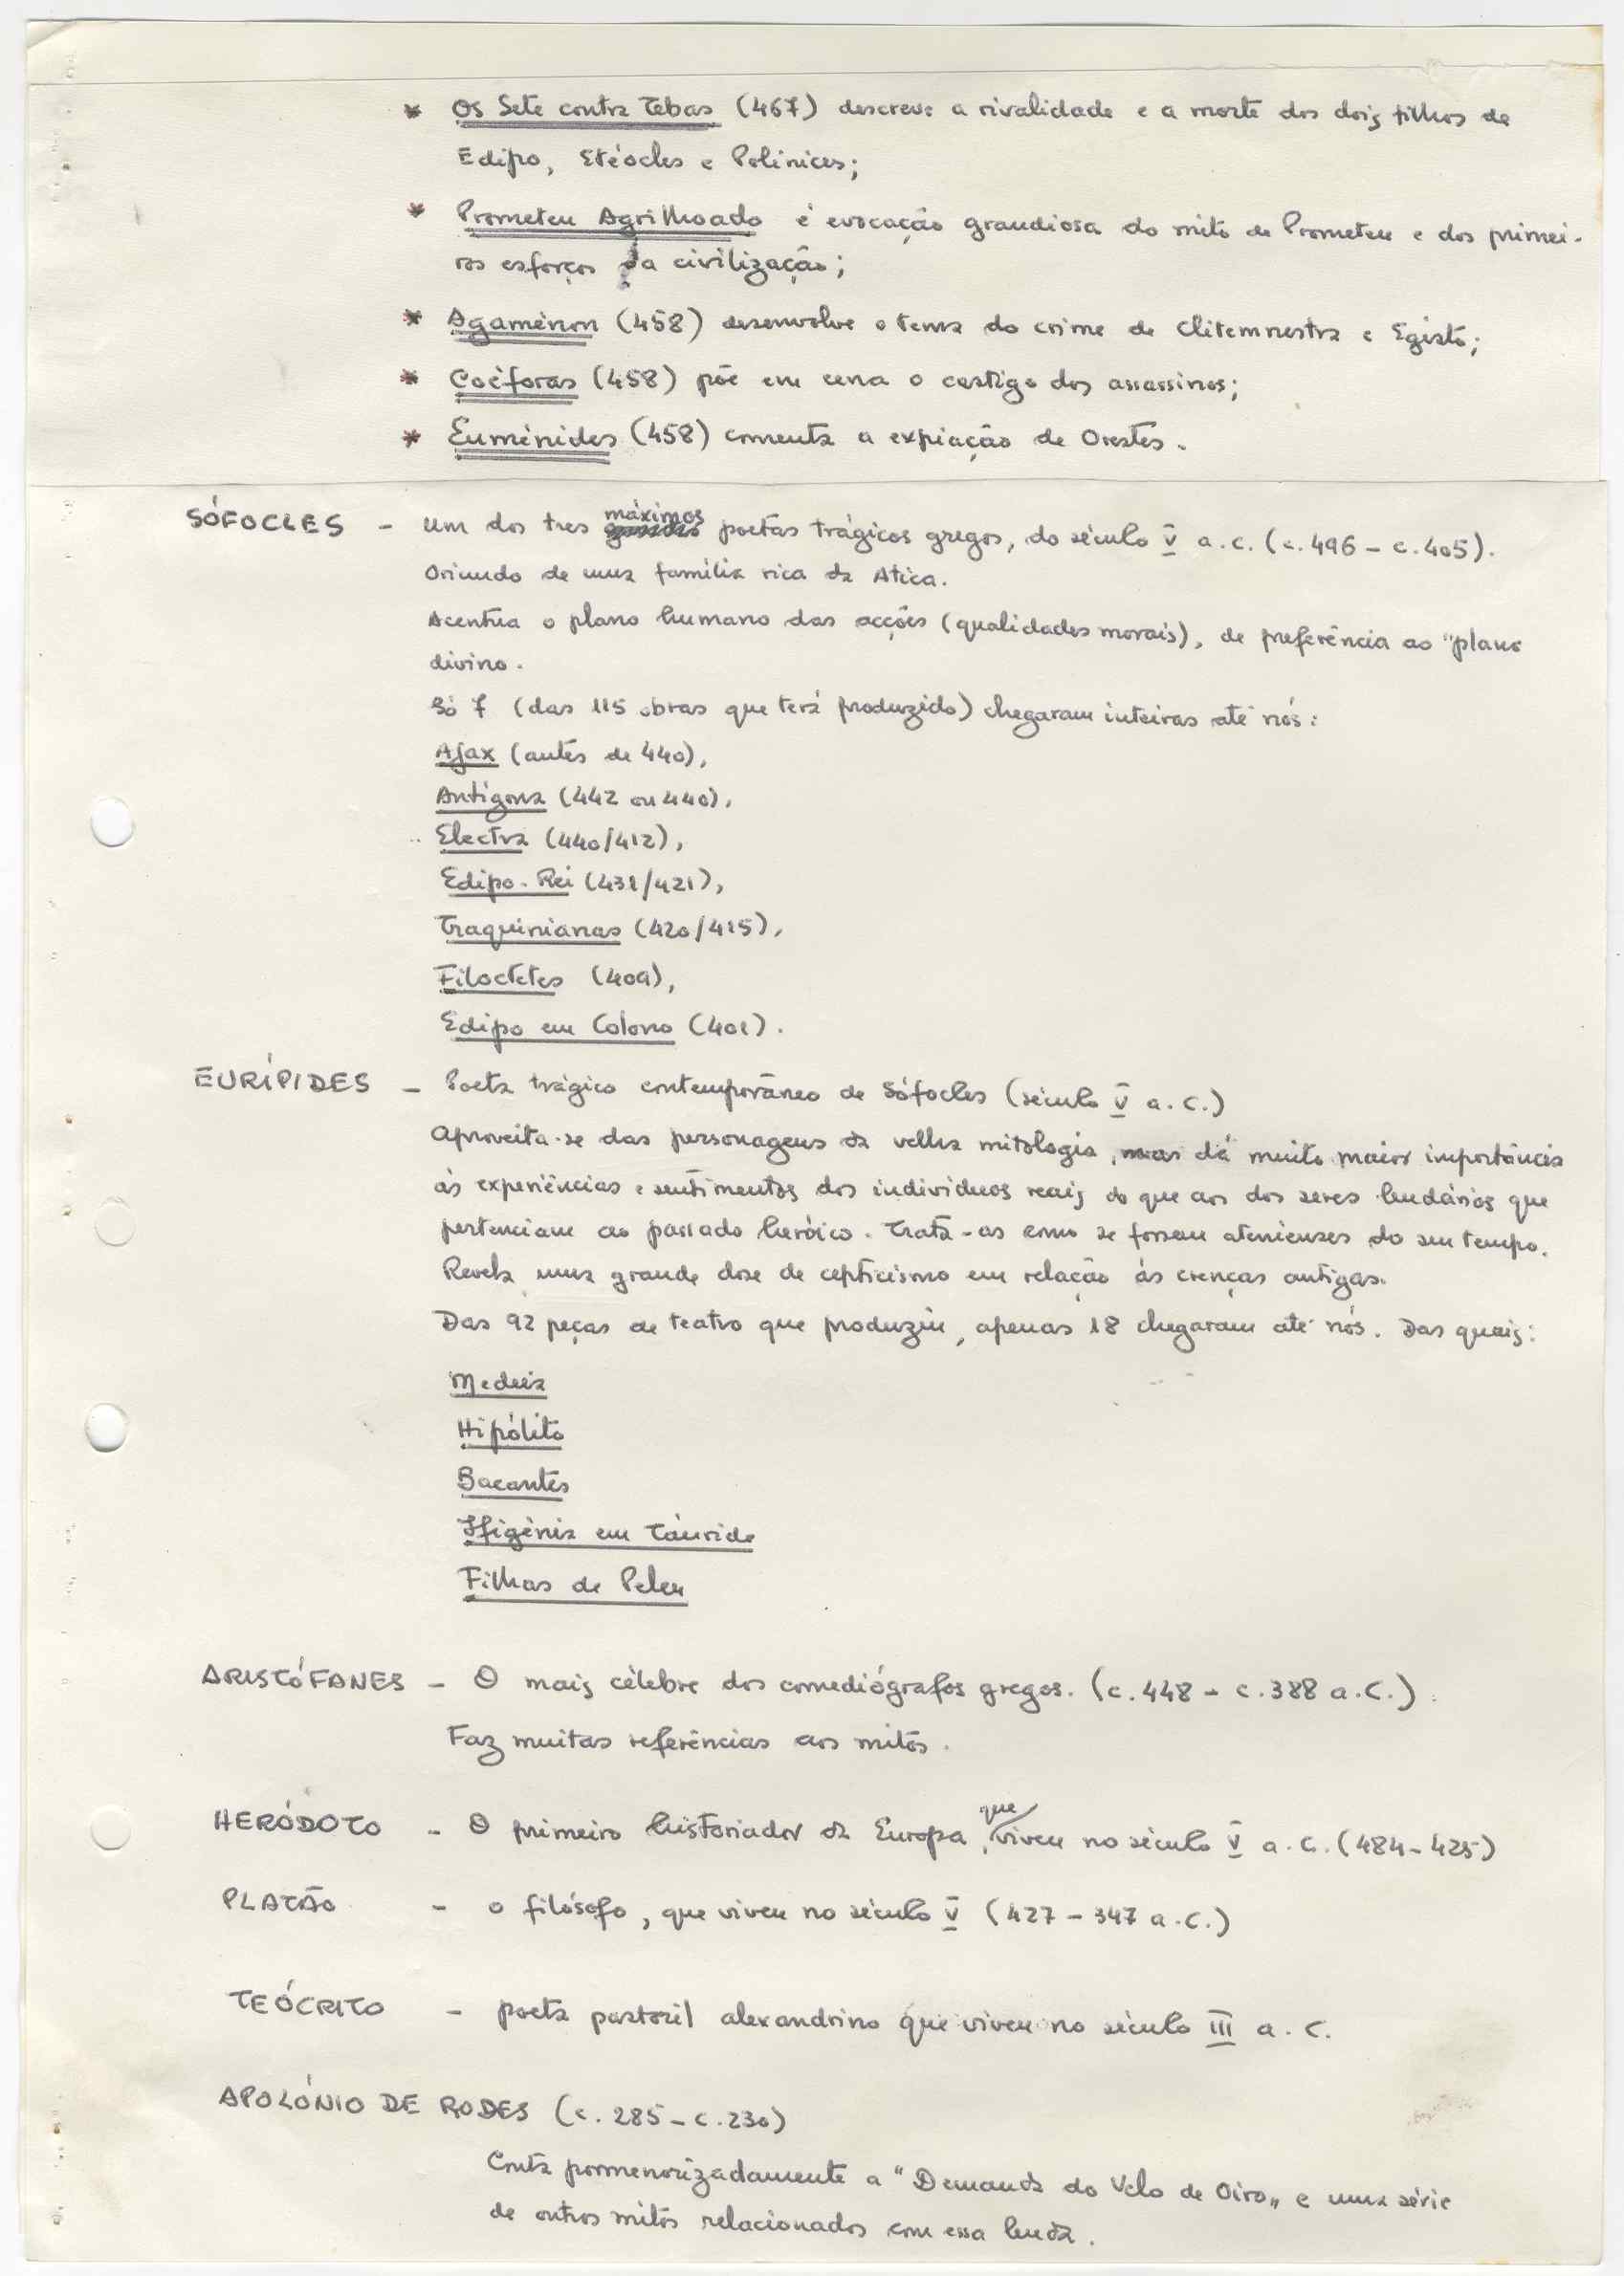 * Os Sete contra Tebas (467) descreve a rivalidade e a morte dos dois filhos de
Edipo, Etéocles e Polinices;
* Prometeu Agrilhoado é evocação grandiosa do mito de Prometeu e dos primei-
ros esforços da civilização;
* Agamémnon (458) desenvolve o tema do crime de Clitemnestra e Egisto;
* Coéforas (458) põe em cena o castigo dos assassinos;
* Euménides (458) comenta a expiação de Orestes.
SÓFOCLES - Um dos tres máximos poetas trágicos gregos, do século V a.c. (c.496 - c.405).
Oriundo de uma família rica da Atica.
Acentua o plano humano das acções (qualidades morais), de preferência ao "plano
divino.
Só 7 (das 115 obras que terá produzido) chegaram inteiras até nós:
Ajax (antes de 440),
Antígona (442 ou 440),
Electra (440/412),
Edipo-Rei (431/421),
Traquinianas (420/415),
Filoctetes (409),
Edipo em Colono (401).
EURÍPIDES - Poeta trágico contemporâneo de Sófocles (século V a.C.)
Aproveita-se das personagens da velha mitologia, mas dá muito maior importância
às experiências e sentimentos dos indivíduos reais do que aos dos seres lendários que
pertenciam ao passado heróico. Trata-as como se fossem atenienses do seu tempo.
Revela uma grande dose de cepticismo em relação às crenças antigas.
Das 92 peças de teatro que produziu, apenas 18 chegaram até nós. Das quais:
Medeia
Hipólito
Bacantes
Ifigénia em Táuride
Filhas de Peleu
ARISTÓFANES - O mais célebre dos comediógrafos gregos. (c.448 - c.388 a.C.)
Faz muitas referências aos mitos.
HERÓDOTO - O primeiro historiador da Europa, que viveu no século V a.C. (484-425)
PLATÃO - o filósofo, que viveu no século V (427-347 a.C.)
TEÓCRITO - poeta pastoril alexandrino que viveu no século III a.C.
APOLÓNIO DE RODES (c.285 - c.230)
Conta pormenorizadamente a "Demanda do Velo de Oiro" e uma série
de outros mitos relacionados com essa lenda.